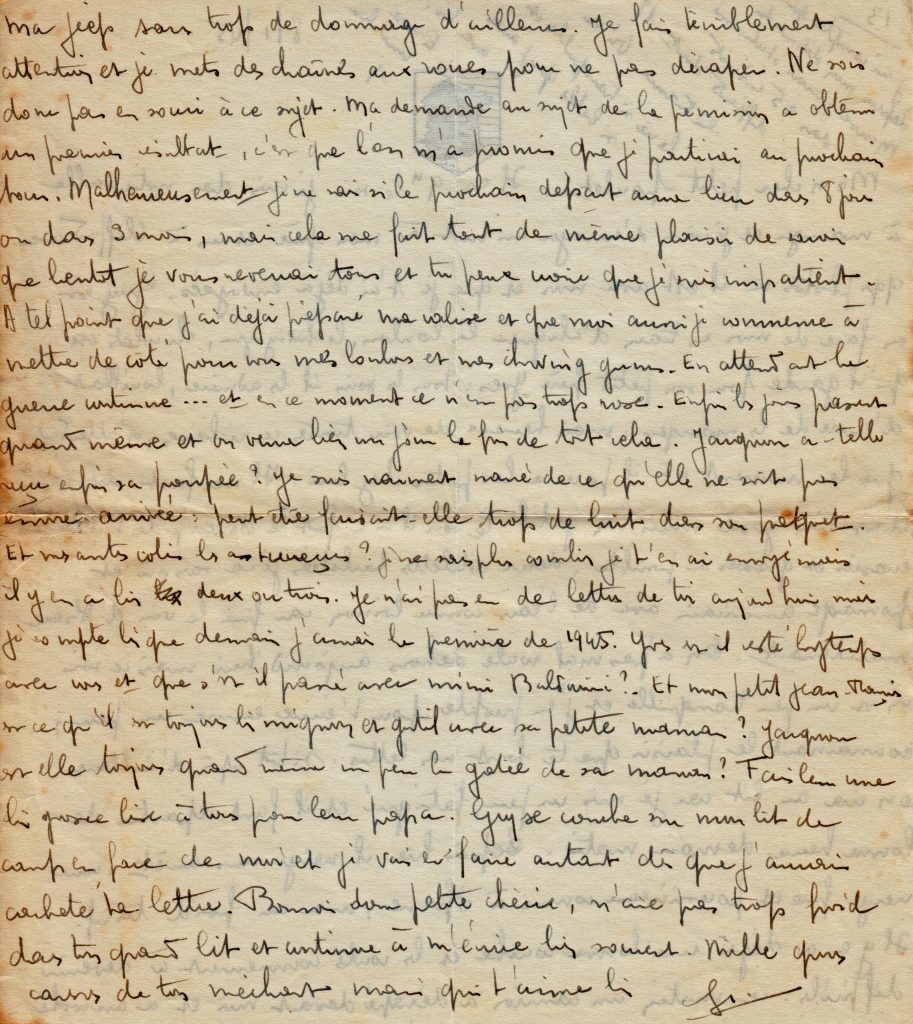 ma jeep sans trop de dommage d'ailleurs. Je fais terriblement
attention et je mets des chaînes aux roues pour ne pas déraper. Ne sois
donc pas en souci à ce sujet. Ma demande au sujet de la permission a obtenu
un premier résultat, c'est que l'on m'a promis que je partirai au prochain
tour. Malheureusement je ne sais si le prochain départ aura lieu dans 8 jours
ou dans 3 mois, mais cela me fait tout de même plaisir de savoir
que bientôt je vous reverrai tous et tu peux croire que je suis impatient.
A tel point que j'ai déjà préparé ma valise et que moi aussi je commence à
mettre de côté pour vous mes bonbons et mes chewing gums. En attendant la
guerre continue ... et en ce moment ce n'est pas trop rose. Enfin les jours passent
quand même et on verra bien un jour la fin de tout cela. Jacquon a-t-elle
reçu enfin sa poupée? Je suis vraiment navré de ce qu'elle ne soit pas
encore arrivée: peut être faisait-elle trop de bruit dans son paquet.
Et vos autres colis les as tu reçus? Je ne sais plus combien je t'en ai envoyé mais
il y en a bien deux ou trois. Je n'ai pas eu de lettre de toi aujourd'hui mais
je compte bien que demain j'aurai la première de 1945. Yves est il resté longtemps
avec vous et que s'est il passé avec mimi Baldacini? Et mon petit Jean-
est ce qu'il est toujours bien mignon et gentil avec sa petite maman? Jacquon
est elle toujours quand même un peu la gâtée de sa maman? Fais leur une
bien grosse bise à tous pour leur papa. Guy se couche sur mon lit de
camp en face de moi et je vais en faire autant dès que j'aurai
cacheté ta lettre. Bonsoir donc petite chérie, n'aie pas trop froid
dans ton grand lit et continue à m'écrire bien souvent. Mille gros
de ton méchant mari qui t'aime bien